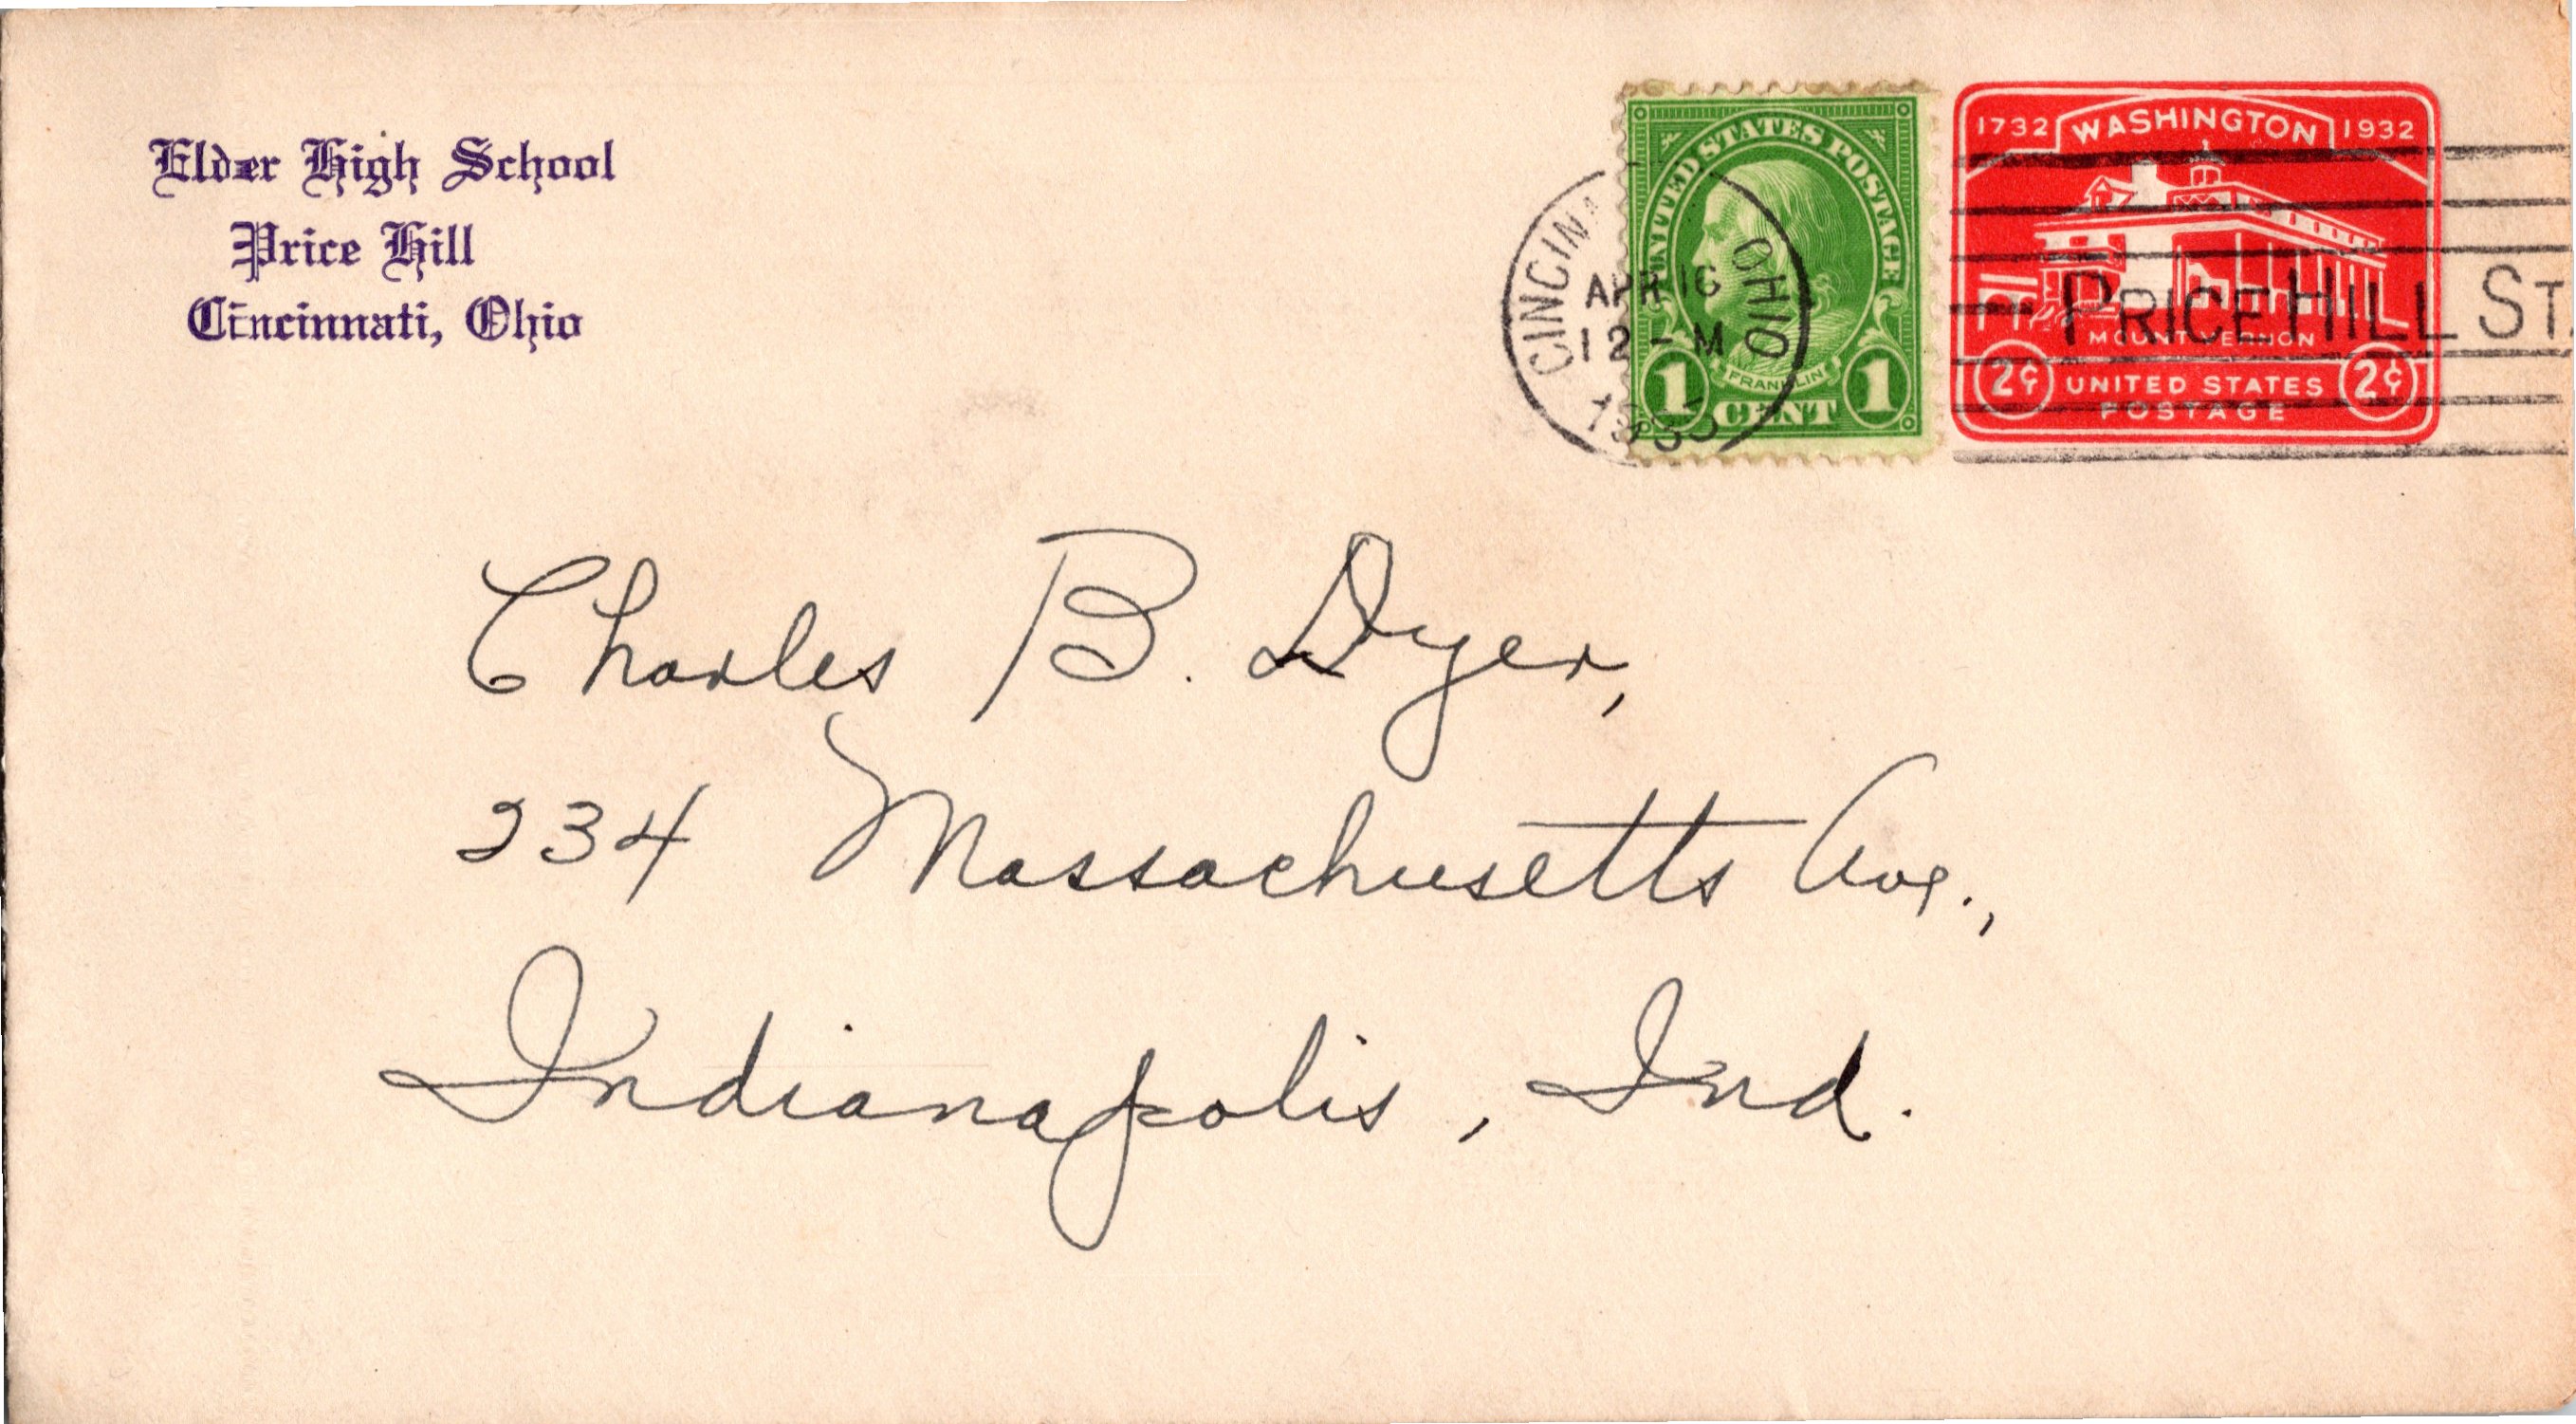 Elder High School
Price Hill
Cincinnati, Ohio
UNITED STATES POSTAGE
FRANKLIN
1 CENT 1
1732 WASHINGTON 1932
MOUNT VERNON
2¢ UNITED STATES 2¢
POSTAGE
OHIO
APR 16
12 - M
PRICE HILL ST
Charles B. Dyer,
234 Massachusetts Ave.,
Indianapolis, Ind.